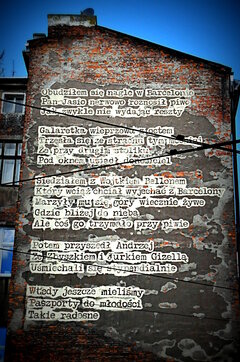 Obudziłem się nagle w Barcelonie
Pan Jasio nerwowo roznosił piwo
Jak zwykle nie wydając reszty
Galaretka wieprzowa z octem
Trzęsła się ze starości
Za przy drugim stoliku
Pod oknem usiadł donosiciel
Siedziałem z Wojtkiem Bellonem
Który wciąż chciał wyjechać z Barcelony
Marzyły mu się góry wiecznie żywe
Gdzie bliżej do nieba
Ale coś go trzymało przy piwie
Potem przyszedł Andrzej
Ze Zbyszkiem i Jurkiem Gizellą
Uśmiechali się stypendialnie
Wtedy jeszcze mieliśmy
Paszporty do młodości
Takie radosne